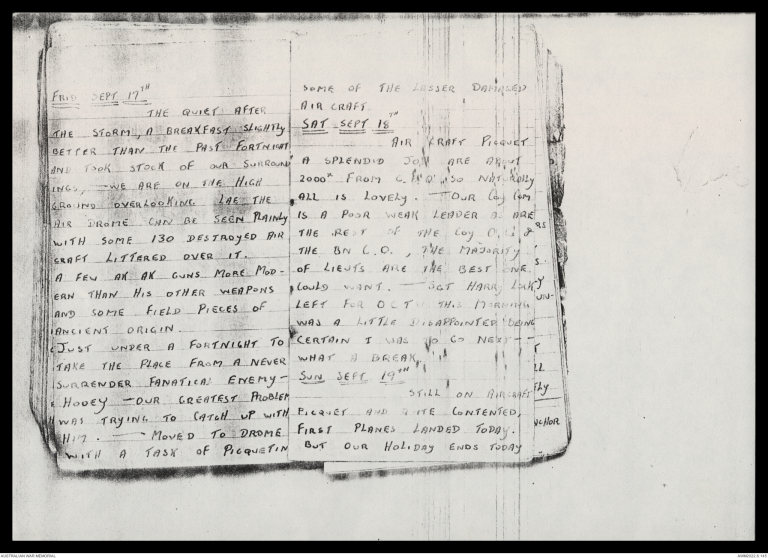 FRID SEPT 17TH
THE QUIET AFTER
THE STORM, A BREAKFAST SLIGHTLY
BETTER THAN THE PAST FORTNIGHT
AND TOOK STOCK OF OUR SURROUND
INGS, — WE ARE ON THE HIGH
GROUND OVERLOOKING LAE THE
AIR DROME CAN BE SEEN PLAINLY
WITH SOME 130 DESTROYED AIR
CRAFT LITTERED OVER IT.
A FEW AK AK GUNS MORE MOD-
ERN THAN HIS OTHER WEAPONS
AND SOME FIELD PIECES OF
ANCIENT ORIGIN.
JUST UNDER A FORTNIGHT TO
TAKE THE PLACE FROM A NEVER
SURRENDER FANATICAL ENEMY—
HOOEY — OUR GREATEST PROBLEM
WAS TRYING TO CATCH UP WITH
HIM. — MOVED TO DROME
WITH A TASK OF PICQUETIN
SOME OF THE LESSER DAMAGED
AIR CRAFT.
SAT SEPT 18TH
AIR CRAFT PICQUET
A SPLENDID JOB ARE ABOUT
2000X FROM C.H.Q. SO NATURALLY
ALL IS LOVELY. — OUR COY COM
IS A POOR WEAK LEADER & ARE
THE REST OF THE COY O.C.S &
THE BN C.O., THE MAJORITY
OF LIEUTS ARE THE BEST ONE
COULD WANT. — SGT HARRY
LEFT FOR OCTU THIS MORNING
WAS A LITTLE DISAPPOINTED BEING
CERTAIN I WAS TO GO NEXT—
WHAT A BREAK.
SUN SEPT 19TH
STILL ON AIRCRAFT
PICQUET AND QUITE CONTENTED,
FIRST PLANES LANDED TODAY.
BUT OUR HOLIDAY ENDS TODAY
RS
S.
Y
UN-
T
LL
TLY
NCHOR
AUSTRALIAN WAR MEMORIAL